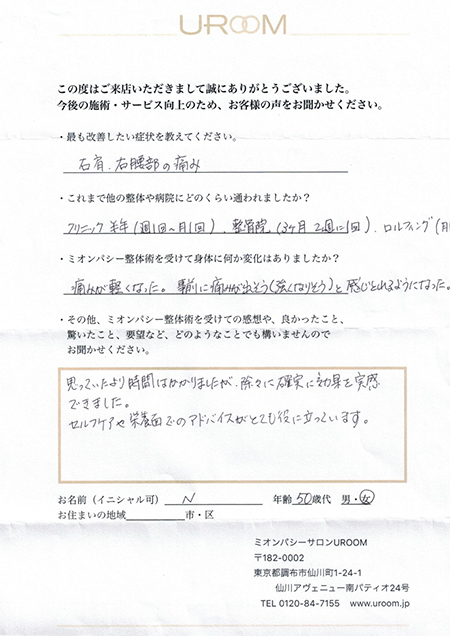 UROOM
この度はご来店いただきまして誠にありがとうございました。
今後の施術・サービス向上のため、お客様の声をお聞かせください。
・最も改善したい症状を教えてください。
右肩、右腰部の痛み
・これまで他の整体や病院にどのくらい通われましたか？
クリニック 半年（週1回〜月1回）、整骨院（3ヶ月 2週に1回）、ロルフィング（月
・ミオンパシー整体術を受けて身体に何か変化はありましたか？
痛みが軽くなった。事前に痛みが出そう（強くなりそう）と感じとれるようになった。
・その他、ミオンパシー整体術を受けての感想や、良かったこと、
驚いたこと、要望など、どのようなことでも構いませんので
お聞かせください。
思っていたより時間はかかりましたが、除々に確実に効果を実感
できました。
セルフケアや栄養面でのアドバイスがとても役に立っています。
お名前（イニシャル可） N 年齢 50歳代 男・女
お住まいの地域 市・区
ミオンパシーサロンUROOM
〒182-0002
東京都調布市仙川町1-24-1
仙川アヴェニュー南パティオ24号
TEL 0120-84-7155 www.uroom.jp